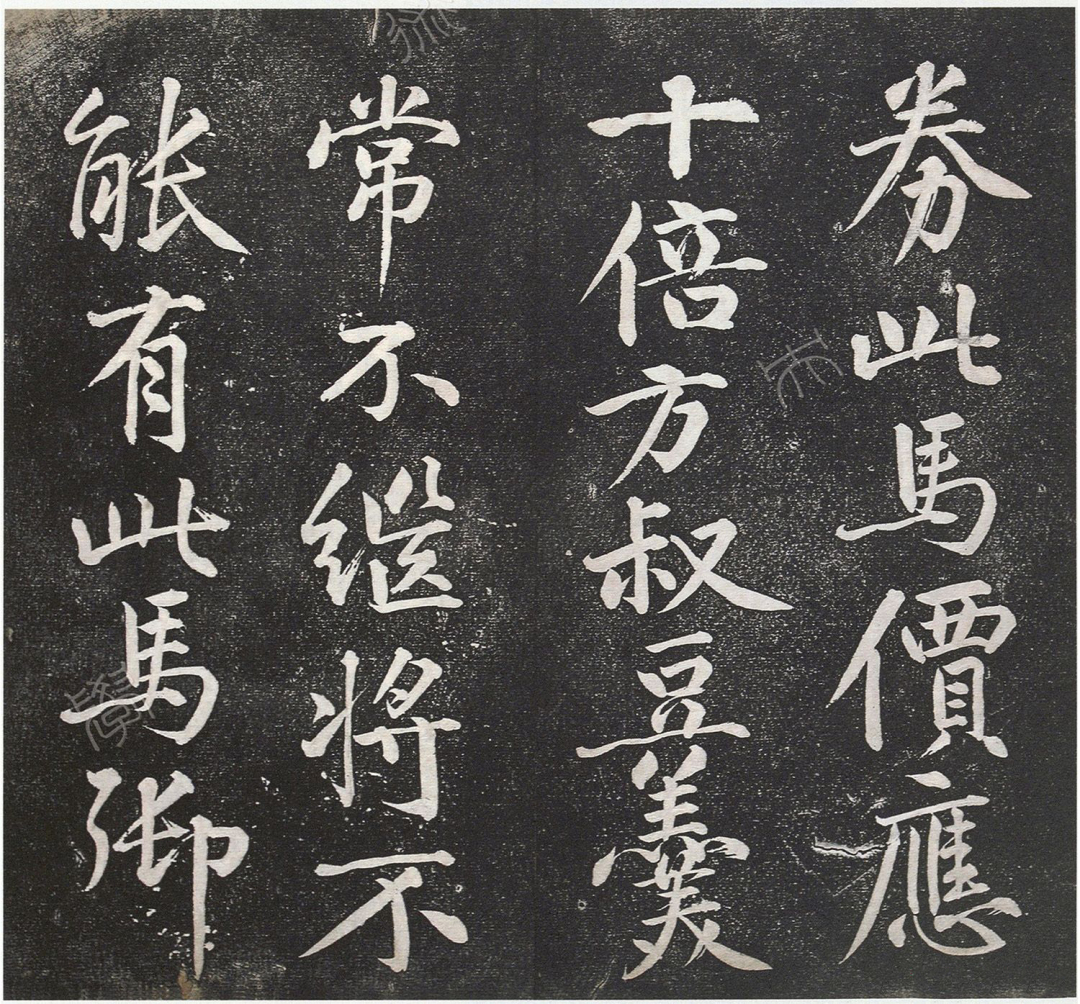 券此馬價應
十倍方叔豆羹
常不繼將不
能有此馬御